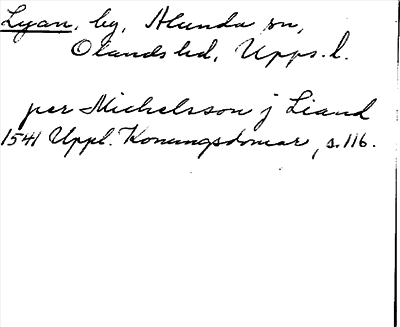 Lyan, by, Alunda sn,
Olands hd, Upps. l.
per Michelsson j Liand
1541 Uppl. Konungsdomar, s. 116.